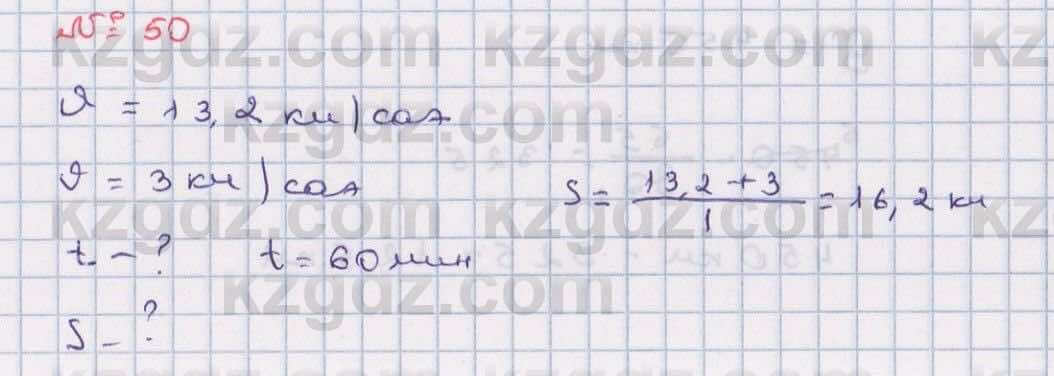 № 50
kzgdz.com kzgdz.com kz
ϑ = 13,2 км/сағ
kzgdz.com kzgdz.com
ϑ = 3 км/сағ
S = (13,2 + 3)/1 = 16,2 км
kzgdz.com kzgdz.com kz
t - ? t = 60 мин
kzgdz.com
S - ?